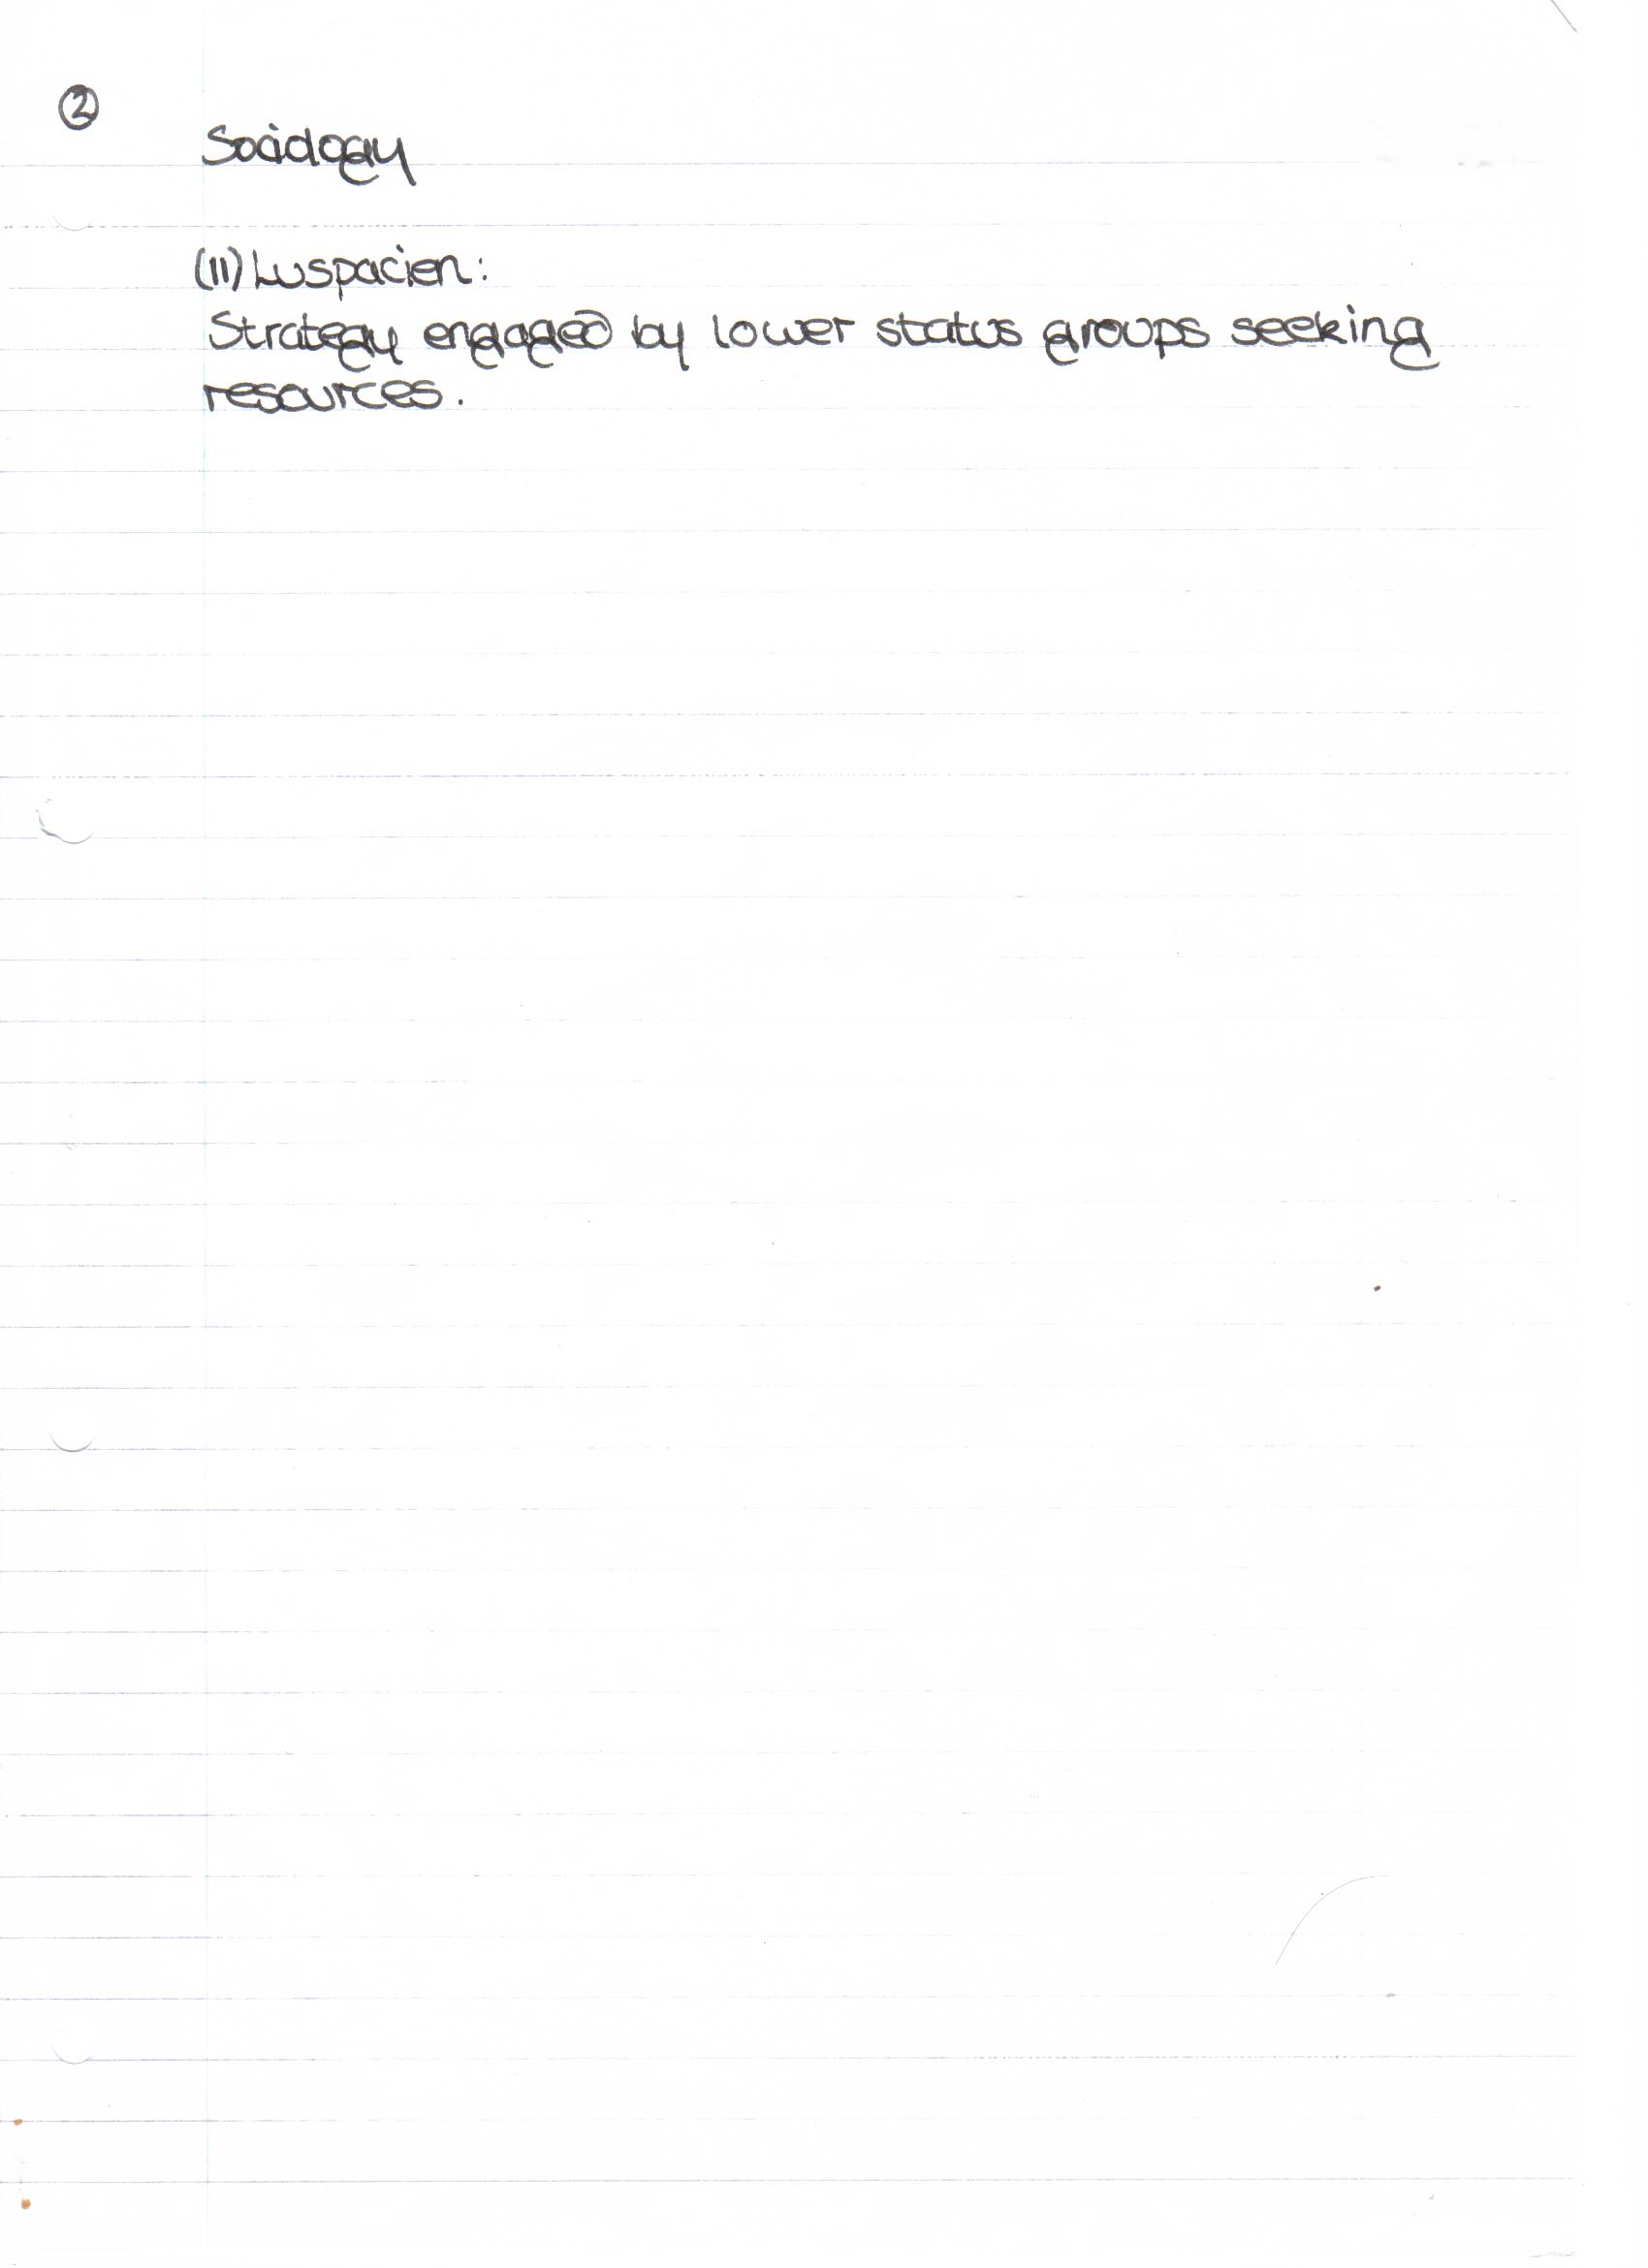 ②
Sociology
(11) Luspacien:
Strategy engaged by lower status groups seeking
resources.